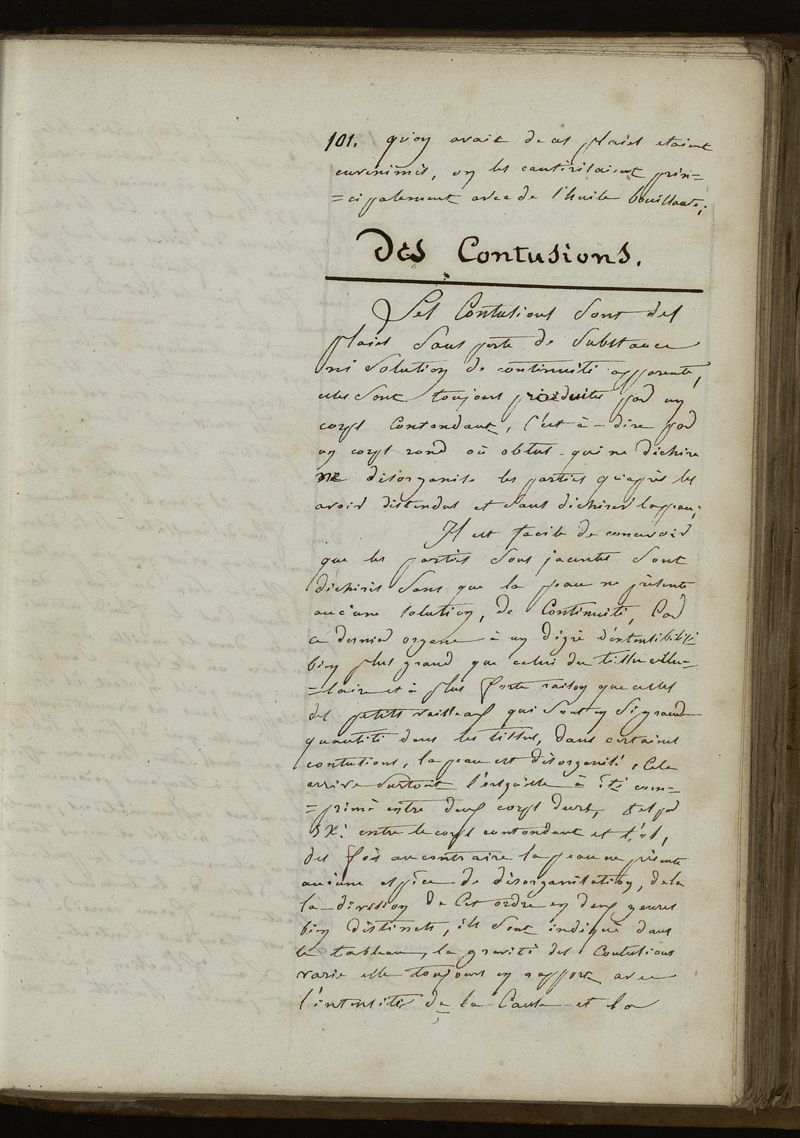 101. qu'on avait de ces plaies etaient
envenimés, on les cautirisaient prin=
=cipalement avec de l'huile bouillante;
Des Contusions.
Les Contusions sont des
plaies sans perte de substance
ni solution de continuité apparente,
elles sont toujours produites par un
corps contondant, c'est à-dire par
un corps rond où obtus qui ne déchire
ne désorganise les parties qu'après les
avoir distendus et sans déchirer la peau;
Il est facile de concevoir
que les parties sous jacentes sont
déchirés sans que la peau ne présente
aucune solution, de Continuité, Car
ce dernier organe à un dégré d'extensibilité
bien plus grand que celui du tissu cellu=
=laire et à plus forte raison que celles
des petits vaisseaux qui sont en si grand
quantité dans les tissus, dans certaines
contusions, la peau est désorganisé, Cela
arrive surtout lorsqu'elle à été com=
=primé entre deux corps durs,
entre le corps contondant et l'os,
des fois au contraire la peau ne présente
aucune espèce de désorganisation, de là
la division de cet ordre en deux genres
bien distincts, ils sont indiqué dans
le tableau, la gravité des Contusions
varie elle toujours en rapport avec
l'intensité de la Cause et la